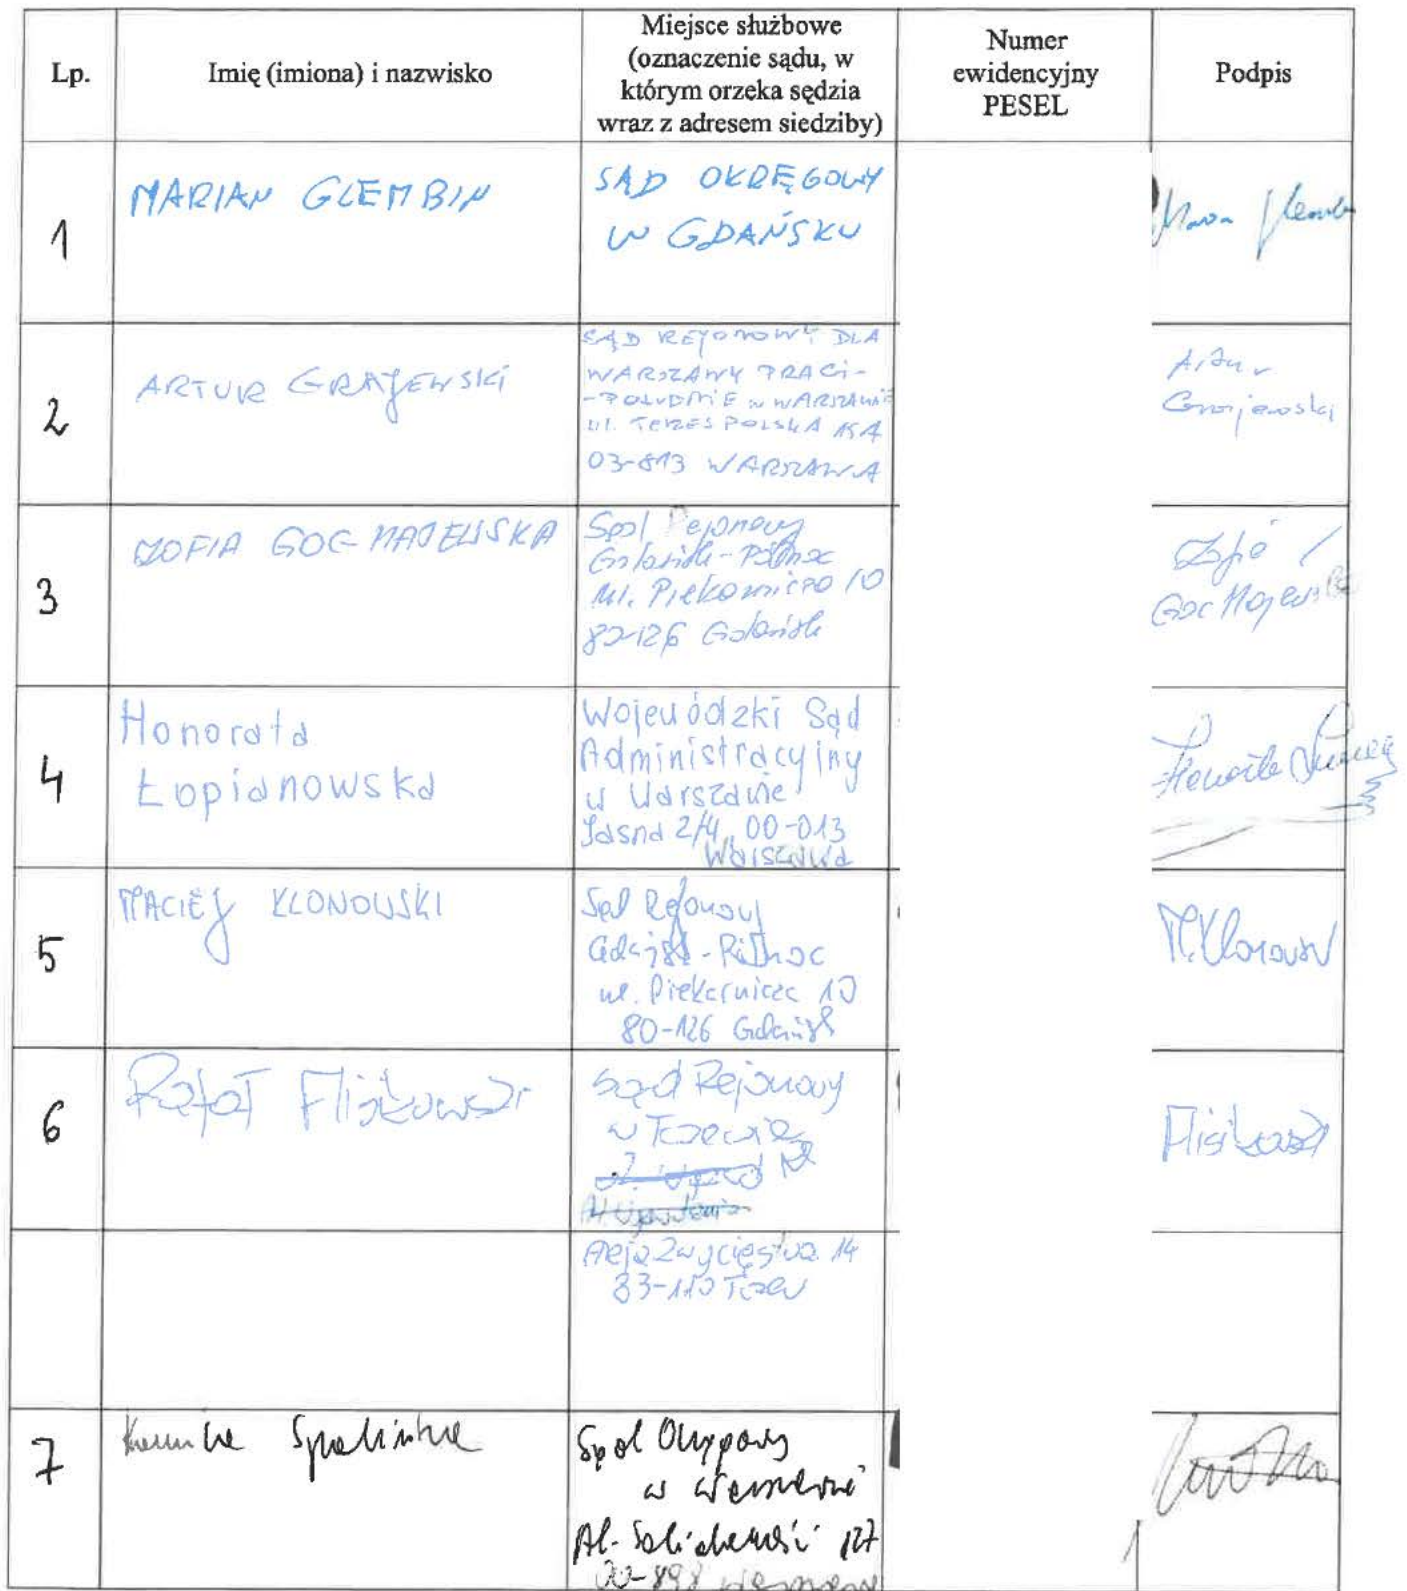 Lp.
Imię (imiona) i nazwisko
Miejsce służbowe
(oznaczenie sądu, w
którym orzeka sędzia
wraz z adresem siedziby)
Numer
ewidencyjny
PESEL
Podpis
1
MARIAN GLEMBIN
SĄD OKRĘGOWY
W GDAŃSKU
2
ARTUR GRAJEWSKI
SĄD REJONOWY DLA
WARSZAWY PRAGI-
-POŁUDNIE w WARSZAWIE
ul. TERESPOLSKA 15A
03-813 WARSZAWA
Artur
Grajewski
3
ZOFIA GOC-MAJEWSKA
Sąd Rejonowy
Gdańsk-Północ
ul. Piekarnicza 10
80-126 Gdańsk
Zofia
Goc Majewska
4
Honorata
Łopianowska
Wojewódzki Sąd
Administracyjny
w Warszawie
Jasna 2/4, 00-013
Warszawa
5
MACIEJ KLONOWSKI
Sąd Rejonowy
Gdańsk-Północ
ul. Piekarnicza 10
80-126 Gdańsk
M.Klonowski
6
Rafał Flisikowski
Sąd Rejonowy
w Tczewie
Aleja Zwycięstwa 14
83-110 Tczew
Flisikowski
7
Spalińska
Sąd Okręgowy
w Warszawie
Al. Solidarności 127
00-898 Warszawa